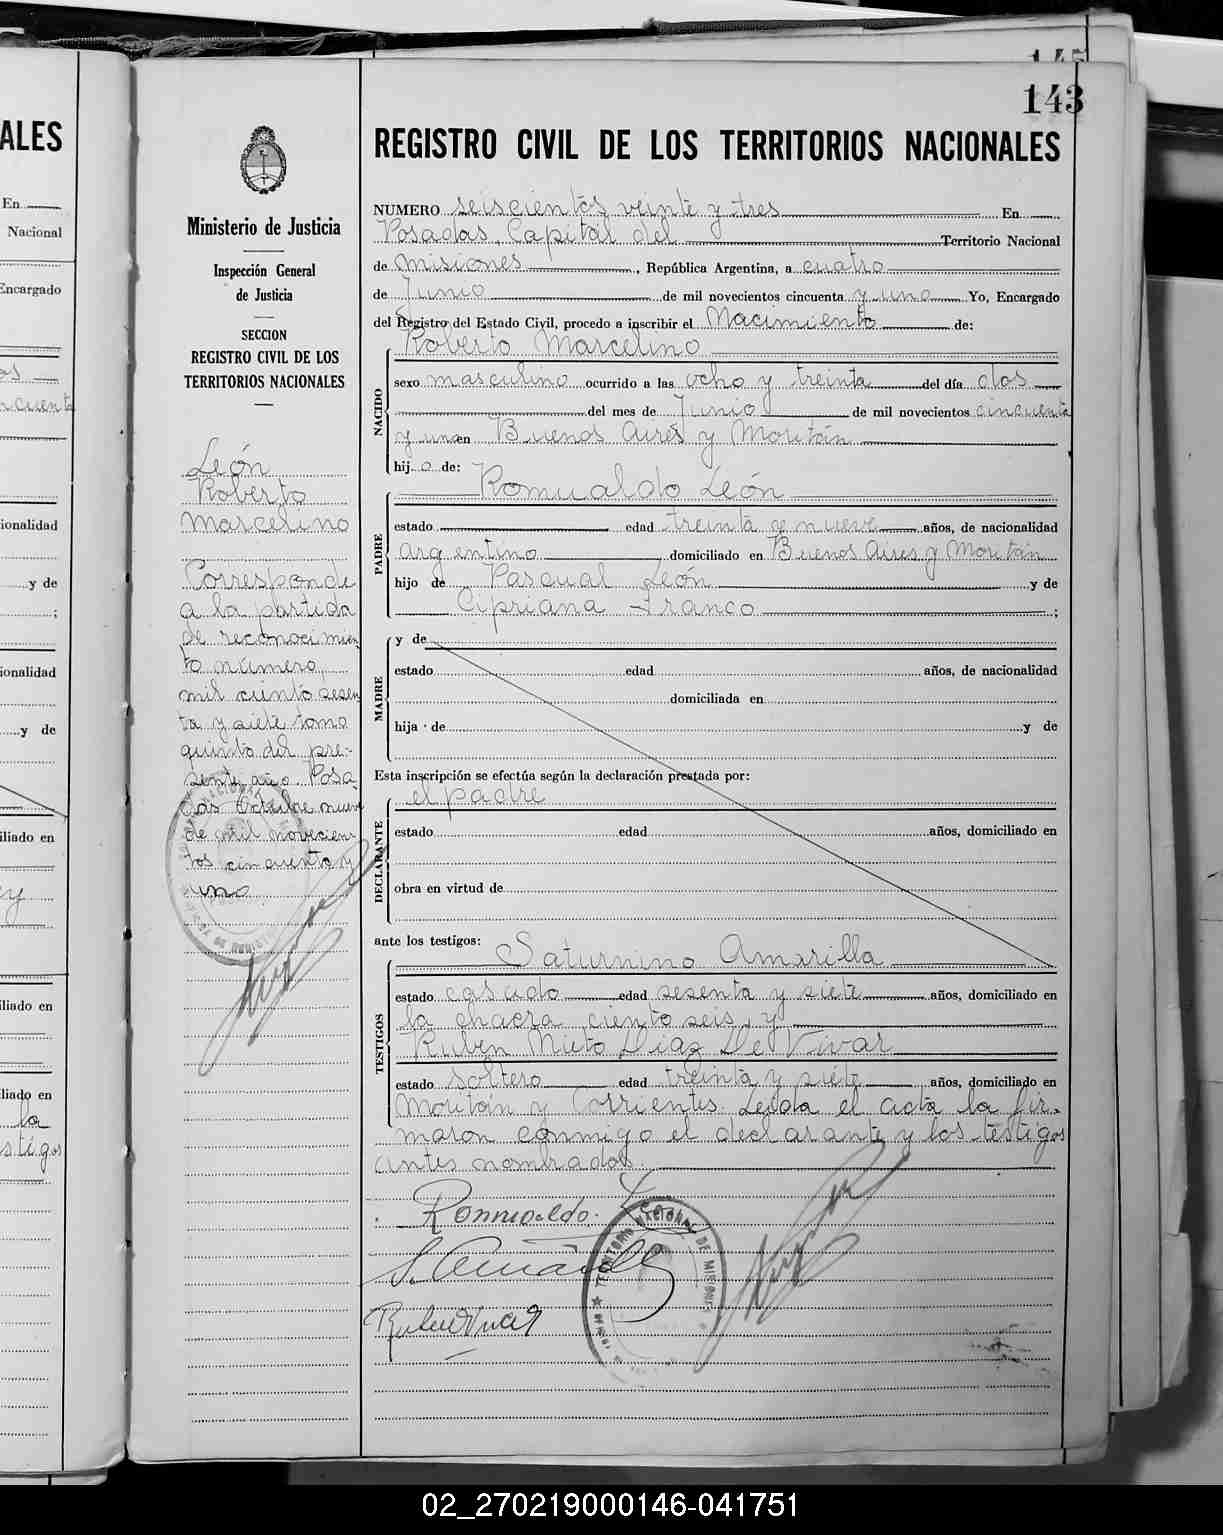 ALES
En
Nacional
Encargado
ionalidad
y de
ionalidad
y de
iliado en
iliado en
liado en
la
stigos
145
143
Ministerio de Justicia
Inspección General
de Justicia
SECCION
REGISTRO CIVIL DE LOS
TERRITORIOS NACIONALES
León
Roberto
Marcelino
Corresponde
a la partida
de reconocimien
to número
mil ciento sesen
ta y siete tomo
quinto del pre-
sente año. Posa
das Octubre nueve
de mil novecien
tos cincuenta y
uno
REGISTRO CIVIL DE LOS TERRITORIOS NACIONALES
NUMERO seiscientos veinte y tres En
Posadas, Capital del Territorio Nacional
de Misiones, República Argentina, a cuatro
de Junio de mil novecientos cincuenta y uno Yo, Encargado
del Registro del Estado Civil, procedo a inscribir el Nacimiento de:
Roberto Marcelino
NACIDO
sexo masculino ocurrido a las ocho y treinta del día dos
del mes de Junio de mil novecientos cincuenta
y uno en Buenos Aires y Moritán
hijo de: Romualdo León
PADRE
estado edad treinta y nueve años, de nacionalidad
argentino domiciliado en Buenos Aires y Moritán
hijo de Pascual León y de
Cipriana Franco ;
MADRE
y de
estado edad años, de nacionalidad
domiciliada en
hija de y de
Esta inscripción se efectúa según la declaración prestada por:
el padre
DECLARANTE
estado edad años, domiciliado en
obra en virtud de
ante los testigos: Saturnino Amarilla
TESTIGOS
estado casado edad sesenta y siete años, domiciliado en
la chacra ciento seis, y
Ruben Nieto Diaz De Vivar
estado soltero edad treinta y siete años, domiciliado en
Moritán y Corrientes. Leída el acta la fir-
maron conmigo el declarante y los testigos
antes nombrados.
Romualdo León
S. Amarilla
TERRITORIO NACIONAL DE MISIONES
02_270219000146-041751